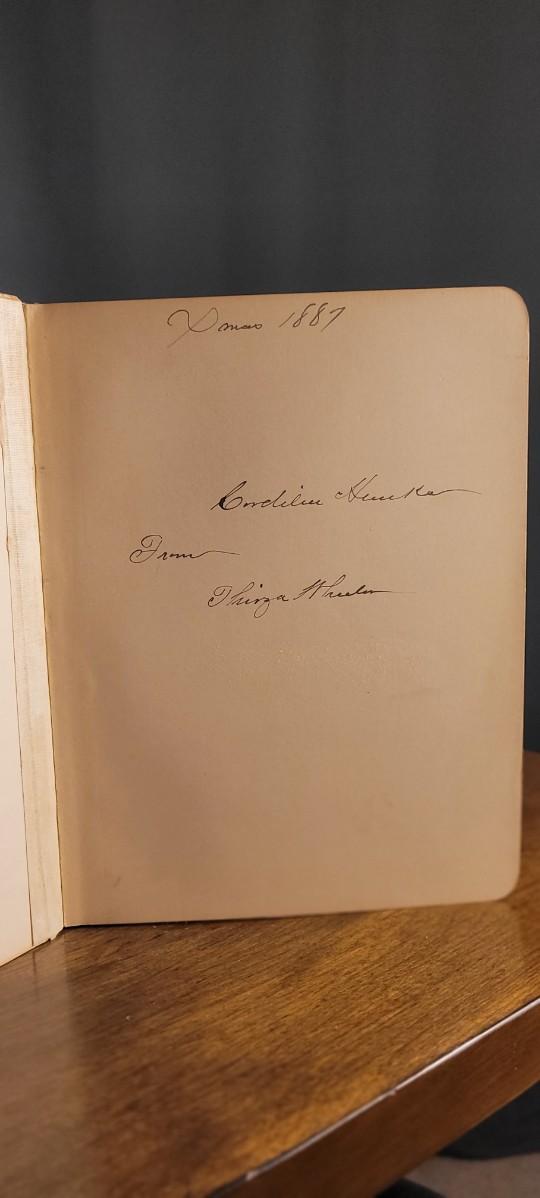 Xmas 1887
Cordelia
From
Thirza Wheeler